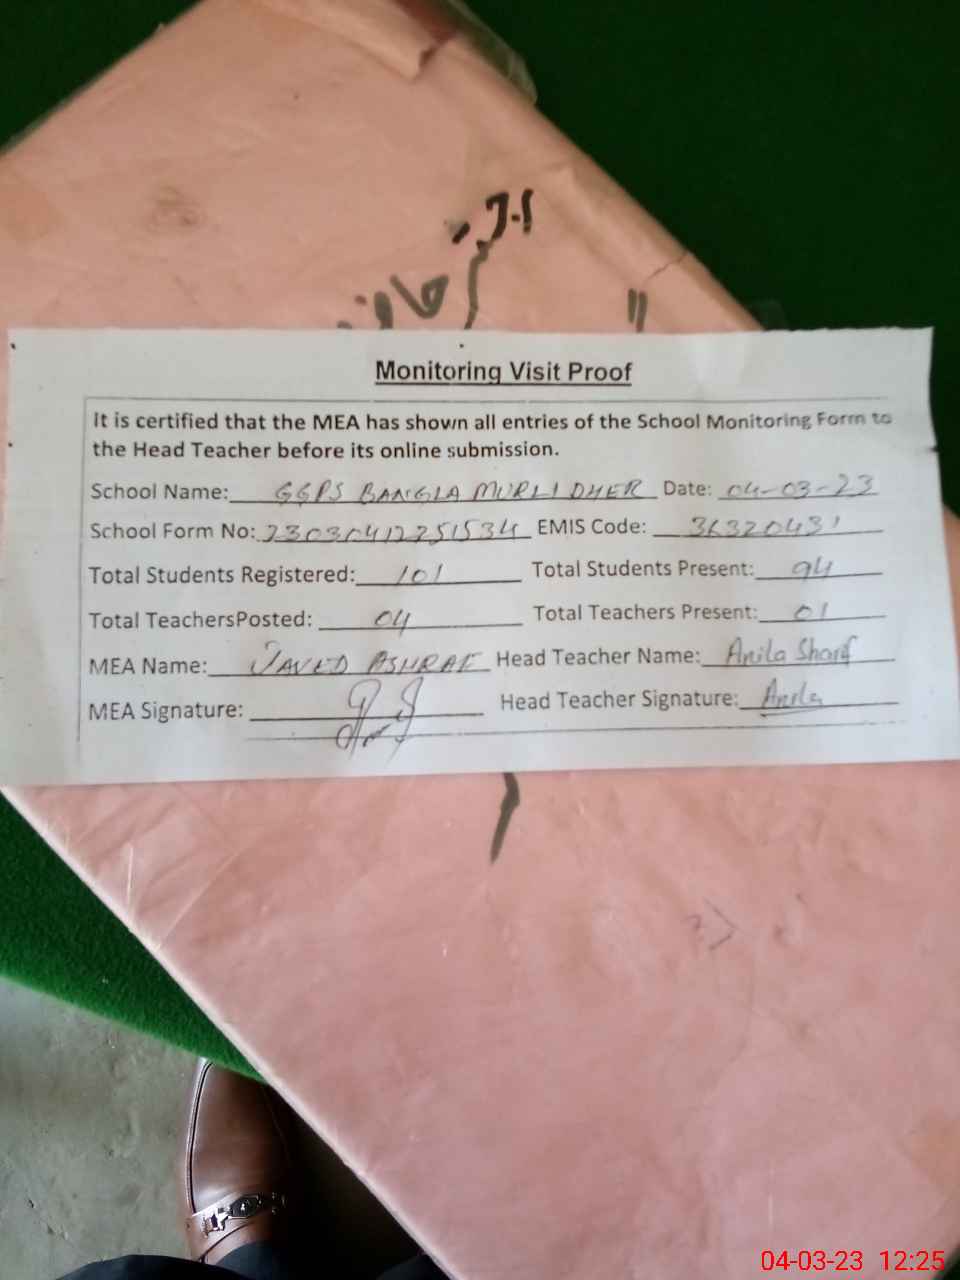 Monitoring Visit Proof
It is certified that the MEA has shown all entries of the School Monitoring Form to
the Head Teacher before its online submission.
School Name: GGPS BANGLA MURLI DHER Date: 04-03-23
School Form No: 23030412251534 EMIS Code: 36320431
Total Students Registered: 101 Total Students Present: 94
Total TeachersPosted: 04 Total Teachers Present: 01
MEA Name: JAVED ASHRAF Head Teacher Name: Anila Sharif
MEA Signature: Head Teacher Signature: Anila
04-03-23 12:25